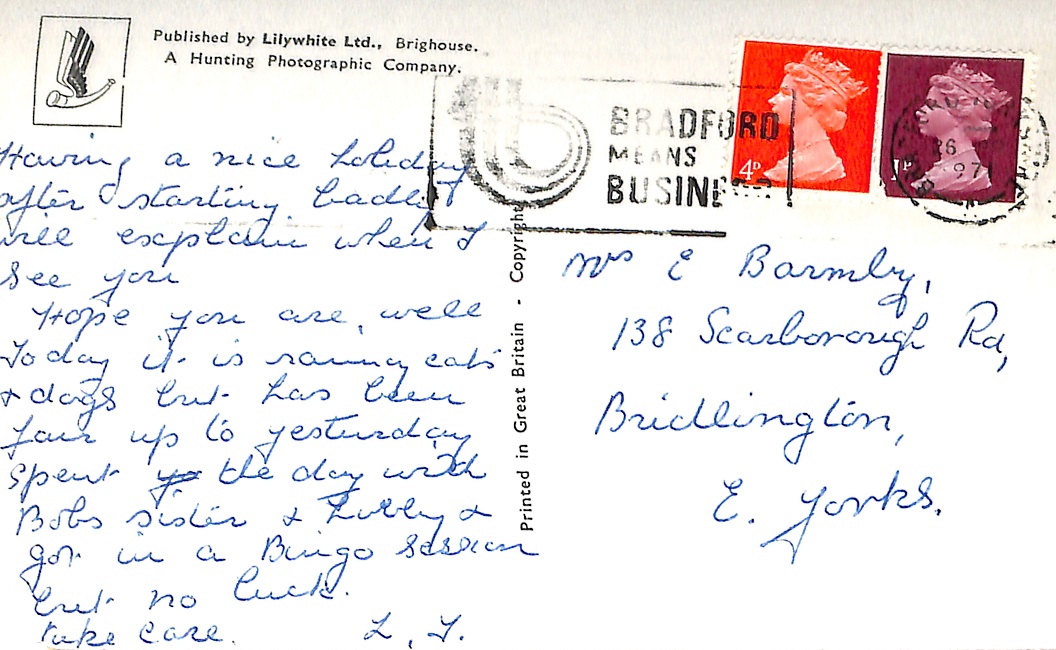 Published by Lilywhite Ltd., Brighouse.
A Hunting Photographic Company.
BRADFORD
MEANS
BUSINE
4D
1P
26
97
Having a nice holiday
after starting badly
will explain when I
see you
Hope you are, well
Today it is raining cats
& dogs but has been
fair up to yesturday
spent the day with
Bobs sister & Libby &
got in a Bingo session
but no luck.
take care. L. J.
Printed in Great Britain - Copyright
Mrs E Barmby,
138 Scarborough Rd,
Bridlington,
E. Yorks.